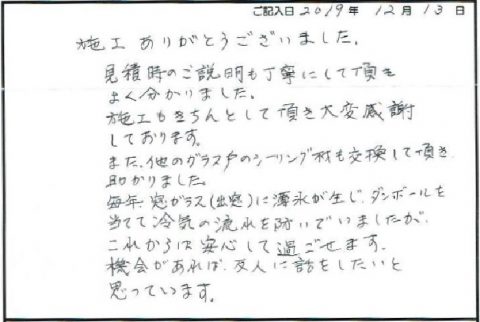 ご記入日 2019年 12月 13日
施工ありがとうございました。
見積時のご説明も丁寧にして頂き
よく分かりました。
施工もきちんとして頂き大変感謝
しております。
また、他のグラス戸のシーリング材も交換して頂き
助かりました。
毎年、窓ガラス(出窓)に薄氷が生じ、ダンボールを
当てて冷気の流れを防いでいましたが、
これからは安心して過ごせます。
機会があれば、友人に話をしたいと
思っています。